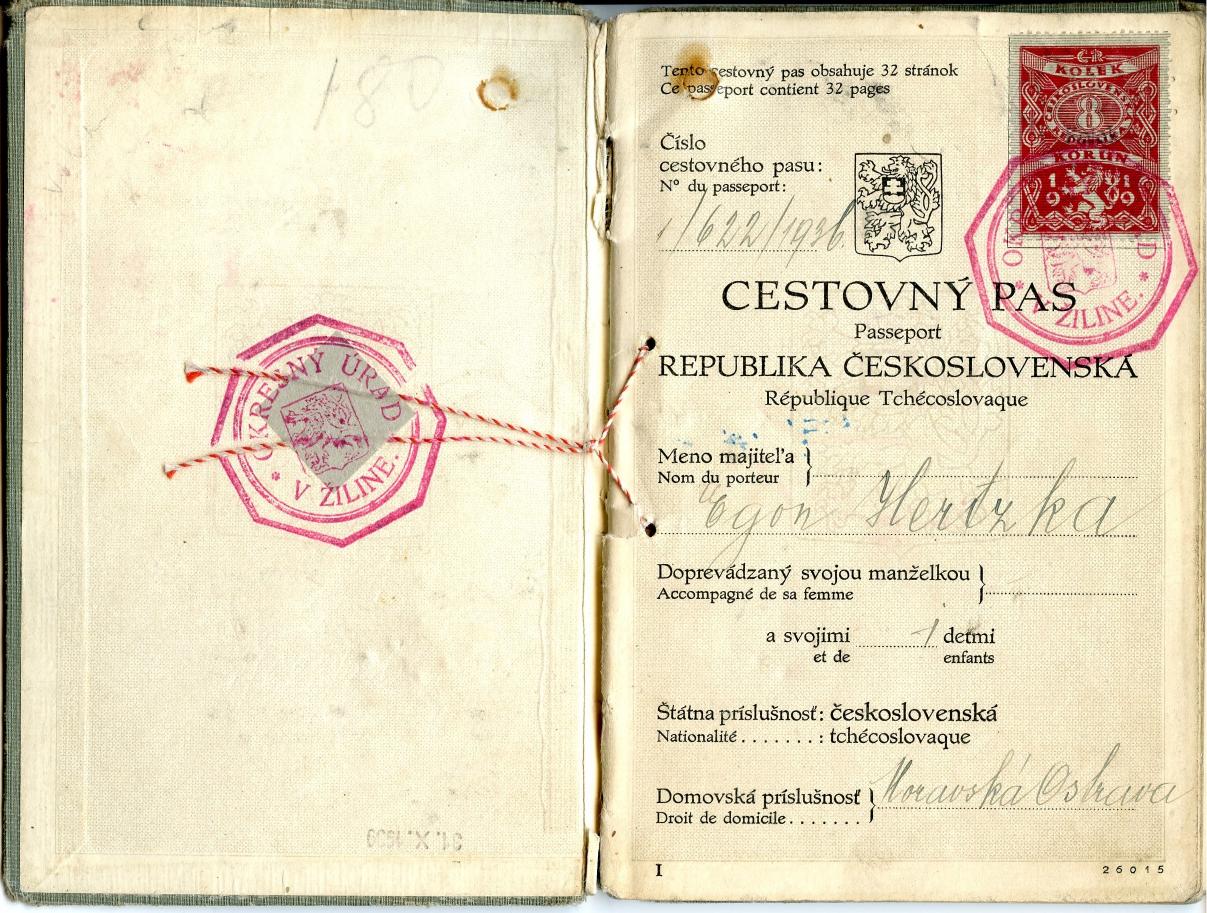 180
OKRESNÝ ÚRAD
* V ŽILINE. *
31.X.1939
Tento cestovný pas obsahuje 32 stránok
Ce passeport contient 32 pages
Číslo
cestovného pasu:
N° du passeport:
1/622/1936.
KOLEK
ČESKOSLOVENSKÁ
8
REPUBLIKA
KORUN
1919
OKRESNÝ ÚRAD
* V ŽILINE. *
CESTOVNÝ PAS
Passeport
REPUBLIKA ČESKOSLOVENSKÁ
République Tchécoslovaque
Meno majiteľa
Nom du porteur
Egon Hertzka
Doprevádzaný svojou manželkou
Accompagné de sa femme
a svojimi 1 deťmi
et de enfants
Štátna príslušnosť: československá
Nationalité . . . . . . . : tchécoslovaque
Domovská príslušnosť Moravská Ostrava
Droit de domicile . . . . . . .
I
26015